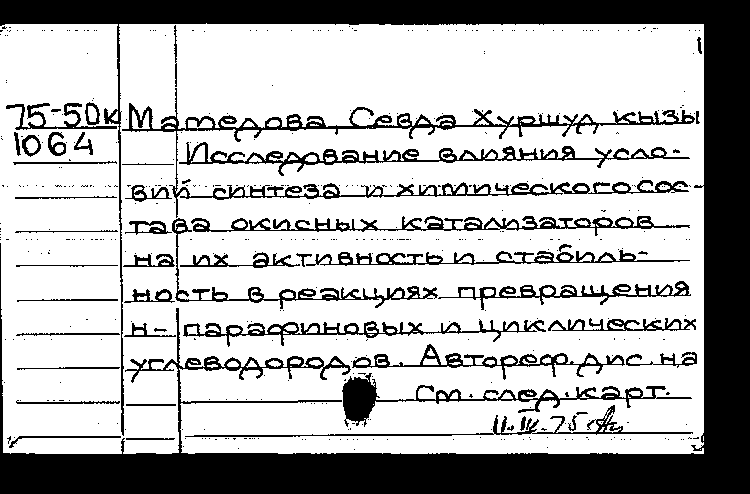 1
75-50к Мамедова, Севда Хуршуд кызы
1064 Исследование влияния усло-
вий синтеза и химического сос-
тава окисных катализаторов
на их активность и стабиль-
ность в реакциях превращения
н- парафиновых и циклических
углеводородов. Автореф. дис. на
См. след. карт.
11.IV.75